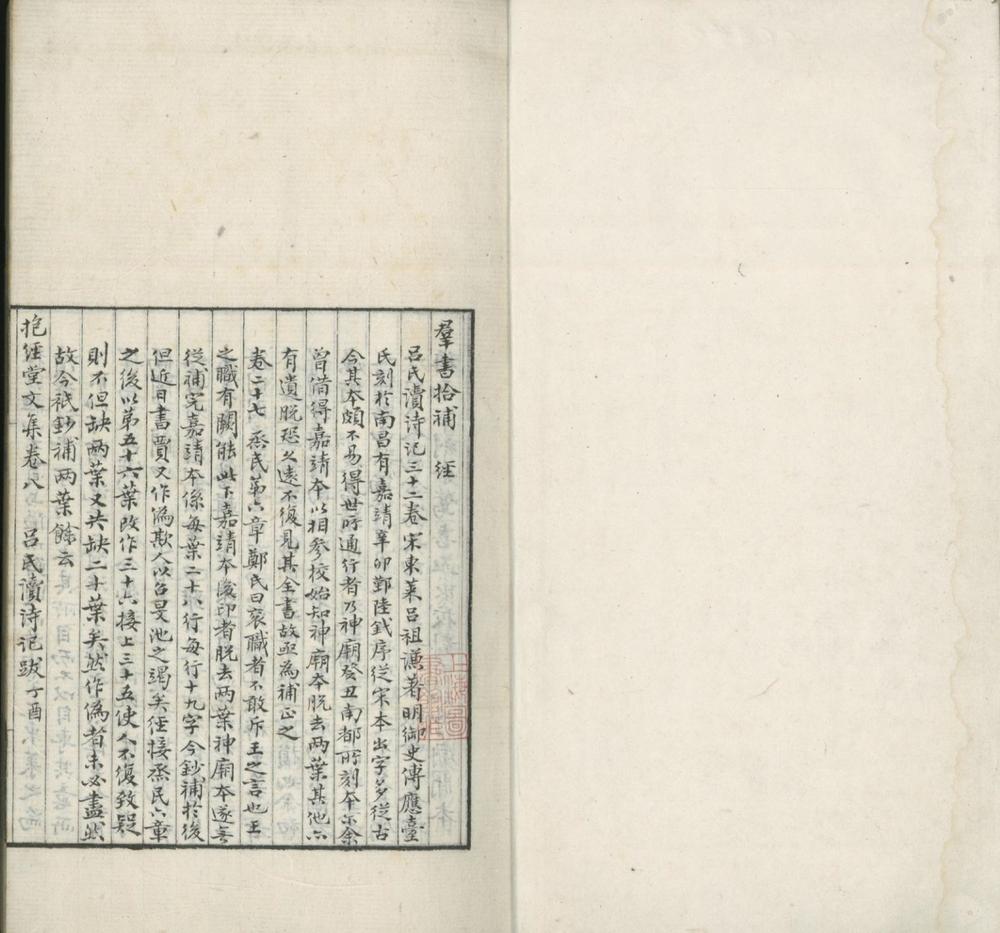 羣書拾補　經
吕氏讀诗记三十二卷宋東萊吕祖謙著明御史傅應臺
氏刻於南昌有嘉靖辛卯鄞陸釴序從宋本出字多從古
今其本頗不易得世所通行者乃神廟癸丑南都所刻本尒余
曾借得嘉靖本以相參校始知神廟本脱去兩葉其他亦
有遺脱恐久遠不復見其全書故亟為補正之
卷二十七　烝民第六章鄭氏曰衮職者不敢斥王之言也王
之職有闕能此下嘉靖本後印者脱去两葉神廟本遂無
從補完嘉靖本係每葉二十八行每行十九字今鈔補於後
但近日書賈又作偽欺人以召旻池之竭矣經接烝民六章
之後以第五十六葉改作三十六接上三十五使人不復致疑
則不但缺两葉又共缺二十葉矣然作偽者未必盡然
故今衹鈔補两葉餘云
抱經堂文集卷八　吕氏讀诗记跋丁酉